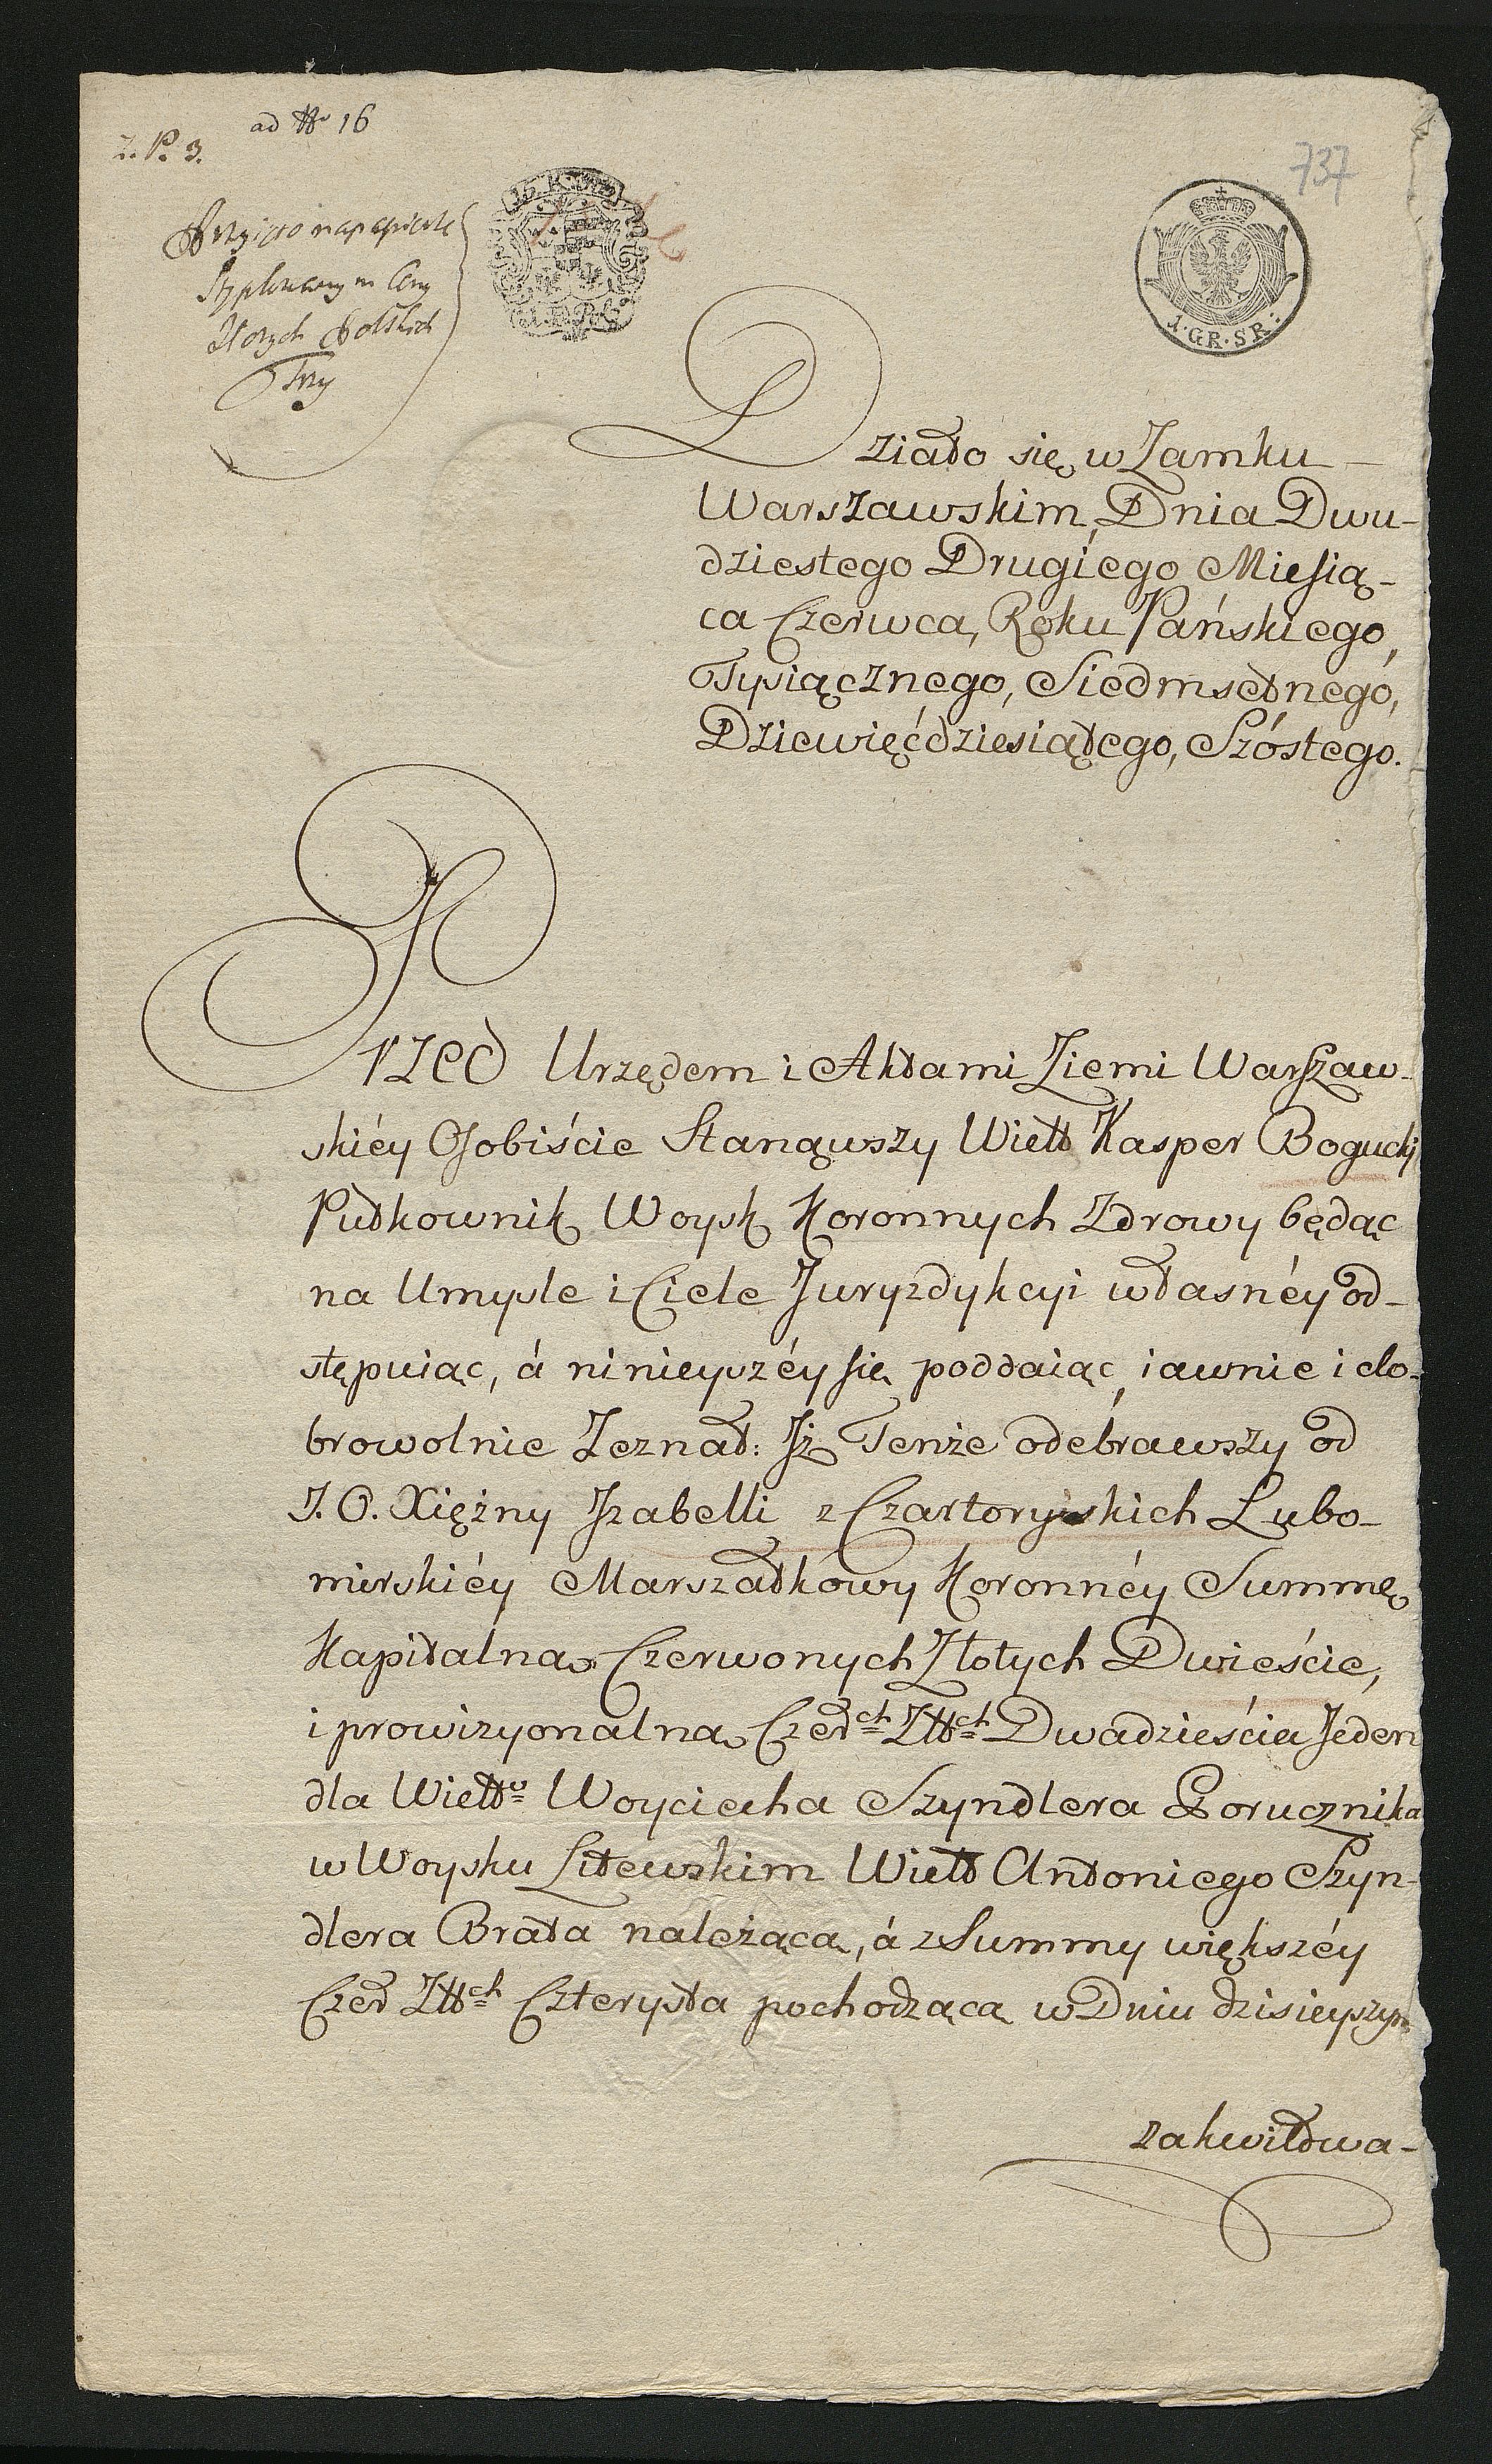 ad No 16
Z. P. 3.
737
Przyięto na papierze
Stęplowanym Ceny
Złotych Polskich
Trzy
1. GR. SR:
Działo się w Zamku
Warszawskim, Dnia Dwu-
dziestego Drugiego Miesią-
ca Czerwca, Roku Pańskiego,
Tysiącznego, Siedmsetnego,
Dziewięćdziesiątego, Szóstego.
Przed Urzędem i Aktami Ziemi Warszaw-
skiéy Osobiście Stanąwszy Wielt Kasper Bogucki
Pułkownik Woysk Koronnych Zdrowy będąc
na Umyśle i Ciele Juryzdykcyi własnéy od-
stępuiąc, á ninieyszéy się poddaiąc, iawnie i do-
browolnie Zeznał: Jż Tenże odebrawszy od
J. O. Xiężny Jzabelli z Czartoryskich Lubo-
mirskiéy Marszałkowy Koronnéy Summę
Kapitalną Czerwonych Złotych Dwieście,
i prowizyonalną Czerch Złłch Dwadzieścia Jeden
dla Wielto Woyciecha Szyndlera Porucznika
w Woysku Litewskim Wielt Antoniego Szyn-
dlera Brata należącą, á z Summy większéy
Czer Złłch Czterysta pochodzącą w Dniu dzisieyszym
zakwitowa-